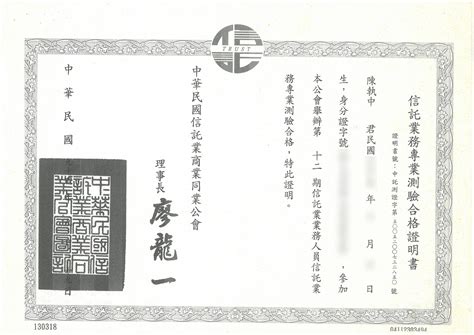 TRUST
信託業務專業測驗合格證明書
證明書號：中託測證字第
陳執中　君民國　年　月　日
生，身分證字號　，參加
本公會舉辦第　十二　期信託業業務人員信託業
務專業測驗合格，特此證明。
中華民國信託業商業同業公會
理事長　廖龍一
中華民國
130318